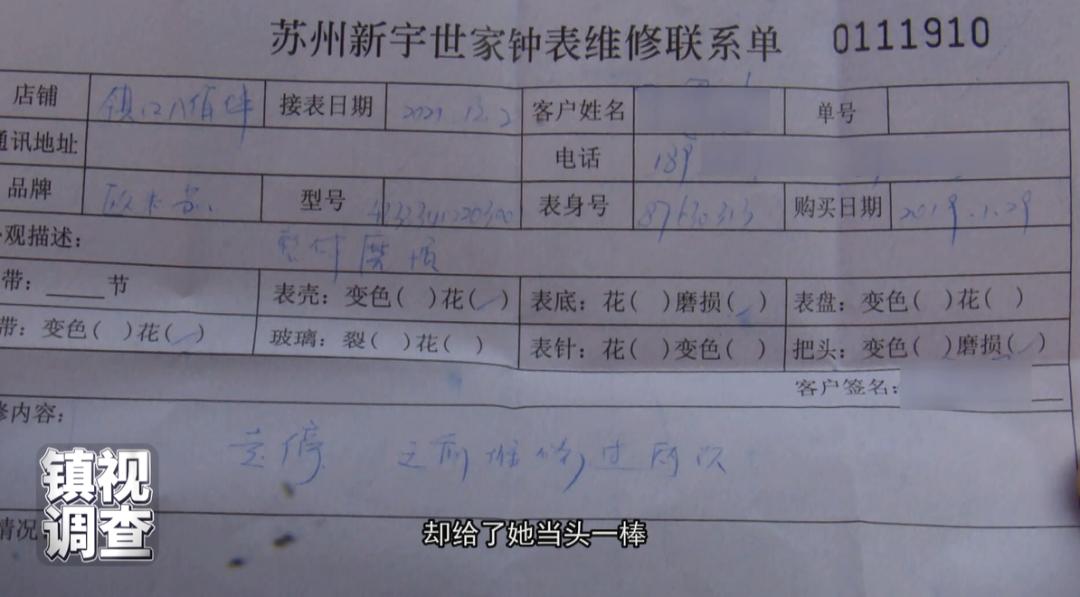 苏州新宇世家钟表维修联系单 0111910
店铺 镇江八佰伴 接表日期 2021.12.2 客户姓名 单号
通讯地址 电话 189
品牌 欧米茄 型号 表身号 87630313 购买日期 2019.1.29
观描述: 整体磨损
带: 节 表壳: 变色( )花(✓) 表底: 花( )磨损(✓) 表盘: 变色( )花( )
带: 变色( )花(✓) 玻璃: 裂( )花( ) 表针: 花( )变色( ) 把头: 变色( )磨损(✓)
客户签名:
修内容:
走停 之前维修过两次
情况
镇视
调查
却给了她当头一棒